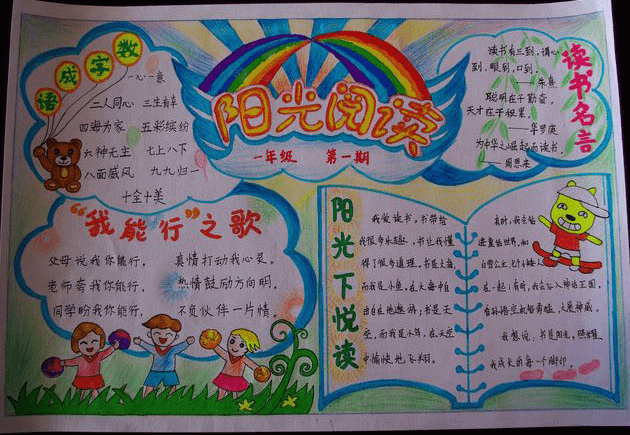 数字成语
一心一意
二人同心 三生有幸
四海为家 五彩缤纷
六神无主 七上八下
八面威风 九九归一
十全十美
阳光阅读
一年级 第一期
读书名言
读书有三到,谓心
到,眼到,口到。
——朱熹
聪明在于勤奋,
天才在于积累。
——华罗庚
为中华之崛起而读书。
——周恩来
“我能行”之歌
父母说我你能行, 真情打动我心灵。
老师夸我你能行, 热情鼓励方向明。
同学盼我你能行, 不负伙伴一片情。
阳光下悦读
我爱读书,书带给
我很多乐趣,书让我懂
得了很多道理。书是大海,
而我是小鱼,在大海中自
由自在地遨游,书是天
空,而我是小鸟,在天空
中愉快地飞翔。
有时,我会钻
进童话世界,和
白雪公主、七个小矮人
在一起;有时,我会入神话王国,
看孙悟空大显神威。
我想说:书是阳光,照耀
我成长的每一个脚印。